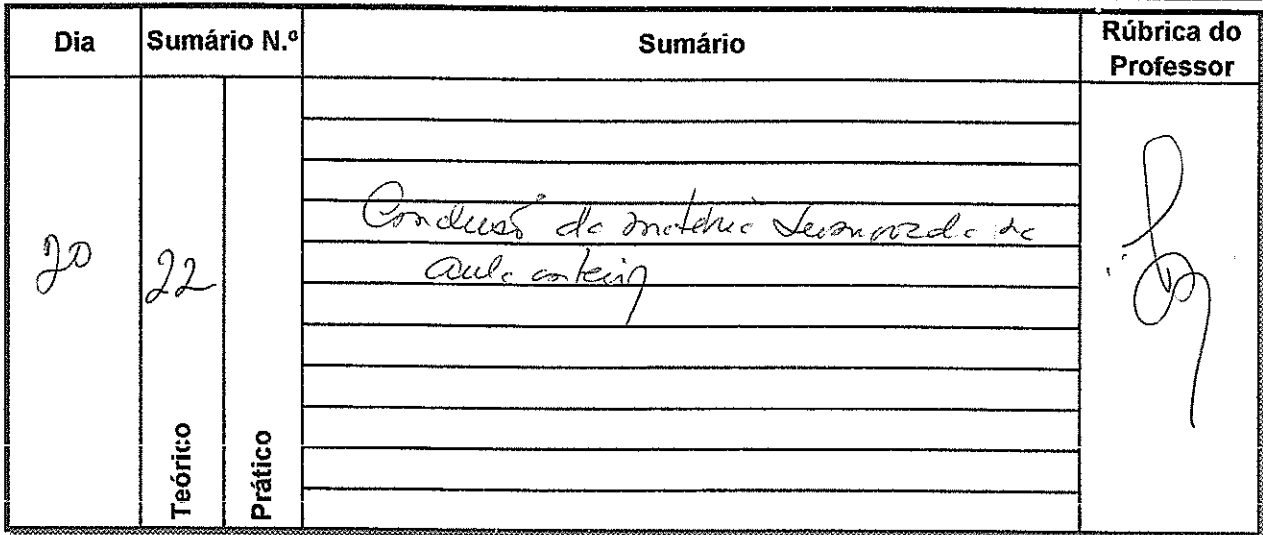 Dia Sumário N.º Sumário Rúbrica do Professor
20 22
Teórico Prático
Conclusão da matéria sumariada na
aula anterior